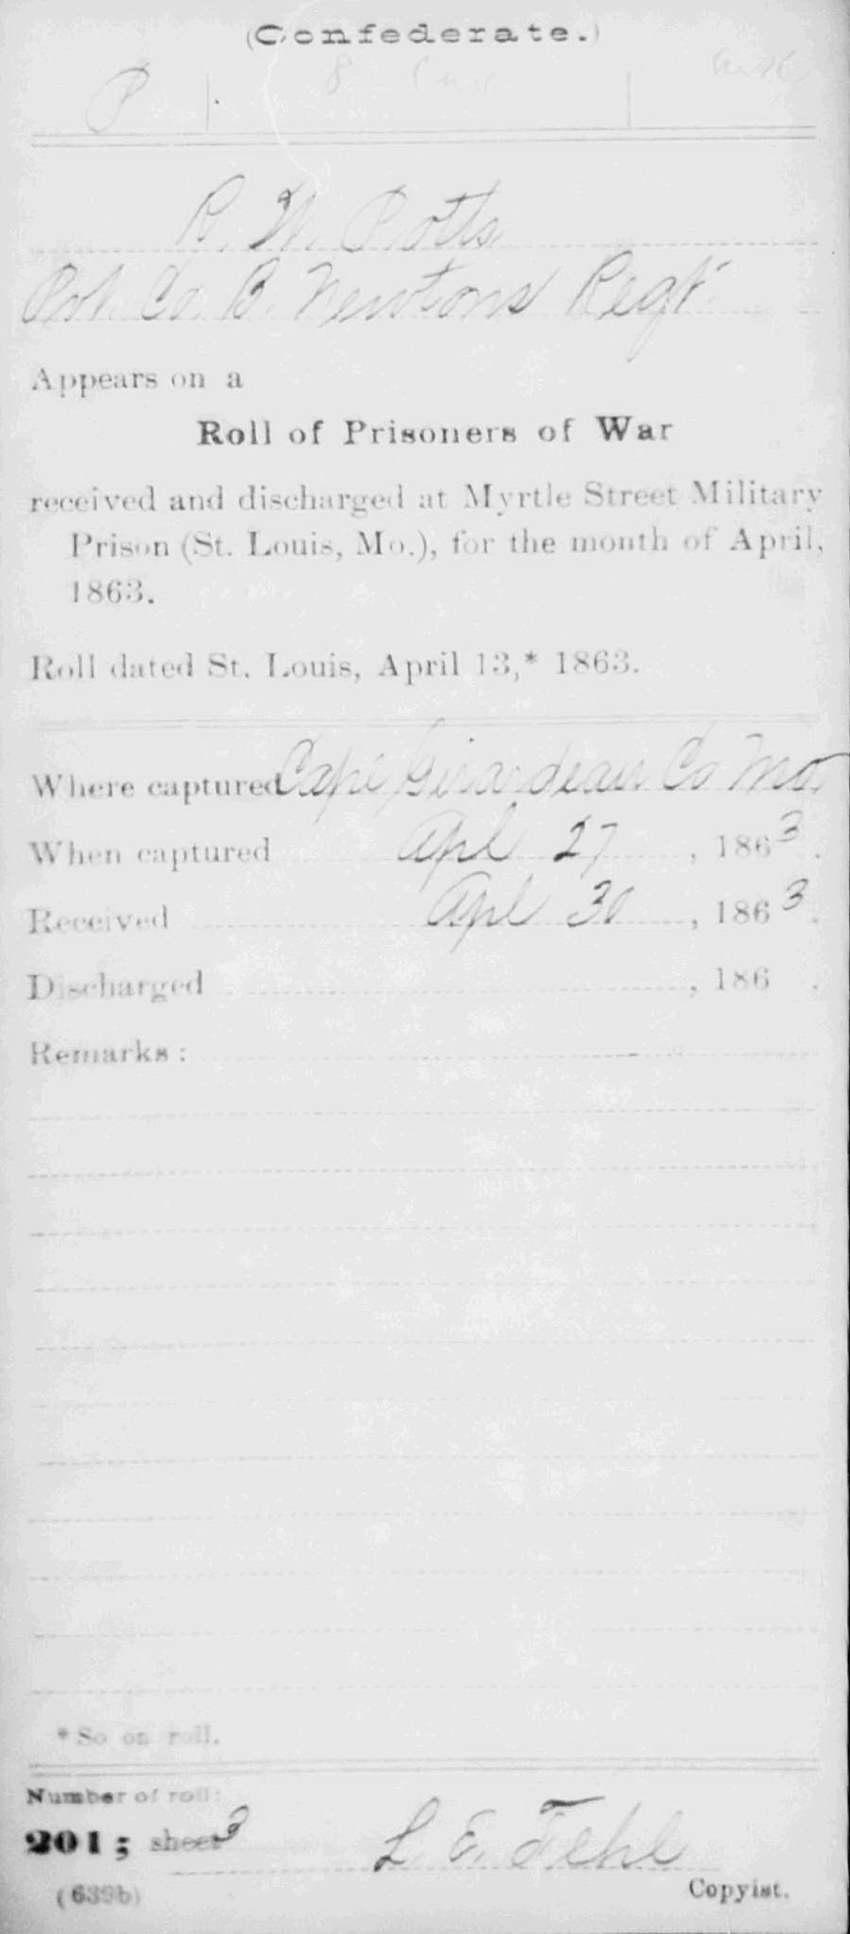 (Confederate.)
P 8 Cav Ark
R. W. Potts
Pvt. Co. B. Newtons Regt.
Appears on a
Roll of Prisoners of War
received and discharged at Myrtle Street Military
Prison (St. Louis, Mo.), for the month of April,
1863.
Roll dated St. Louis, April 13,* 1863.
Where captured Cape Girardeau Co Mo.
When captured Apl 27, 1863.
Received Apl 30, 1863.
Discharged , 186 .
Remarks:
*So on roll.
Number of roll:
201; sheet 3 L. E. Fehl
(639b) Copyist.